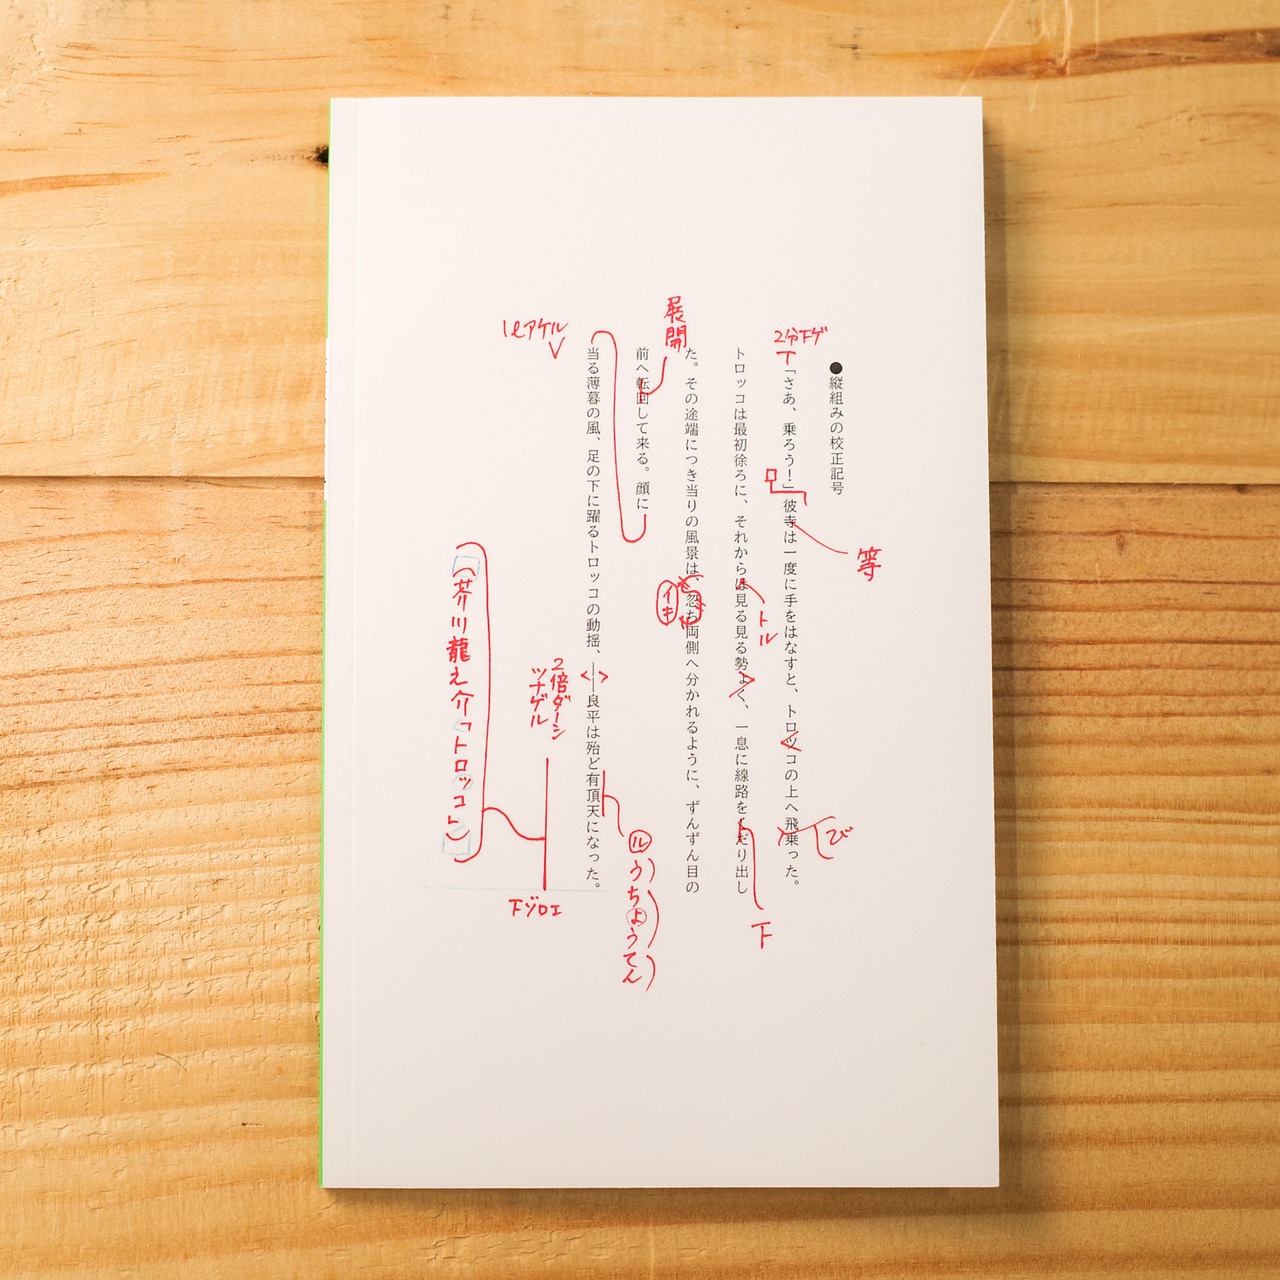 ●縦組みの校正記号
2分下ゲ
「さあ、乗ろう!」彼寺は一度に手をはなすと、トロッコの上へ飛乗った。
等
び
トロッコは最初徐ろに、それからは見る見る勢よく、一息に線路をくだり出し
トル
下
た。その途端につき当りの風景は、忽ち両側へ分かれるように、ずんずん目の
イキ
展開
前へ転回して来る。顔に
1lアケル
当る薄暮の風、足の下に躍るトロッコの動揺、――良平は殆ど有頂天になった。
ルうちょうてん
2倍ダーシ
ツナゲル
下ゾロエ
(芥川龍之介「トロッコ」)